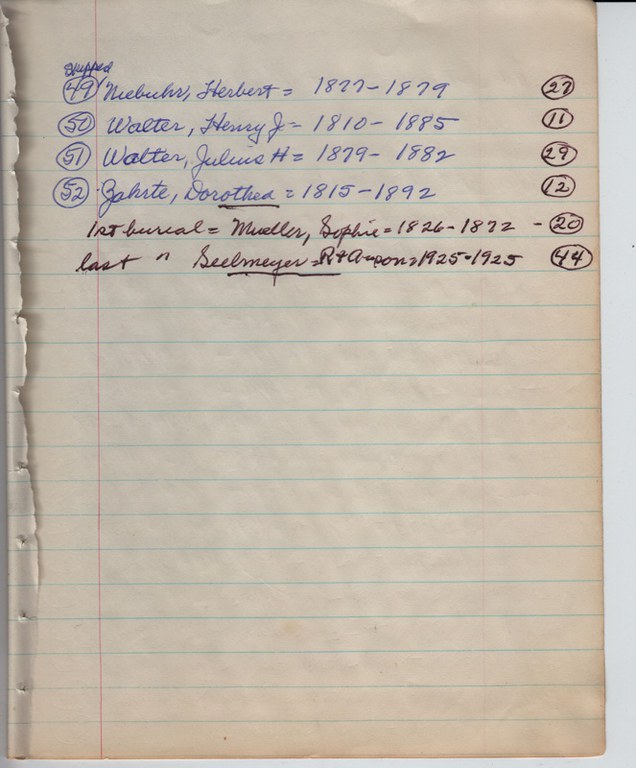 Skipped
49 Niebuhr, Herbert = 1877-1879 27
50 Walter, Henry J = 1810-1885 11
51 Walter, Julius H = 1879-1882 29
52 Zahrte, Dorothea = 1815-1892 12
1st burial = Mueller, Sophie = 1826-1872 - 20
last " Seelmeyer = = 1925-1925 44